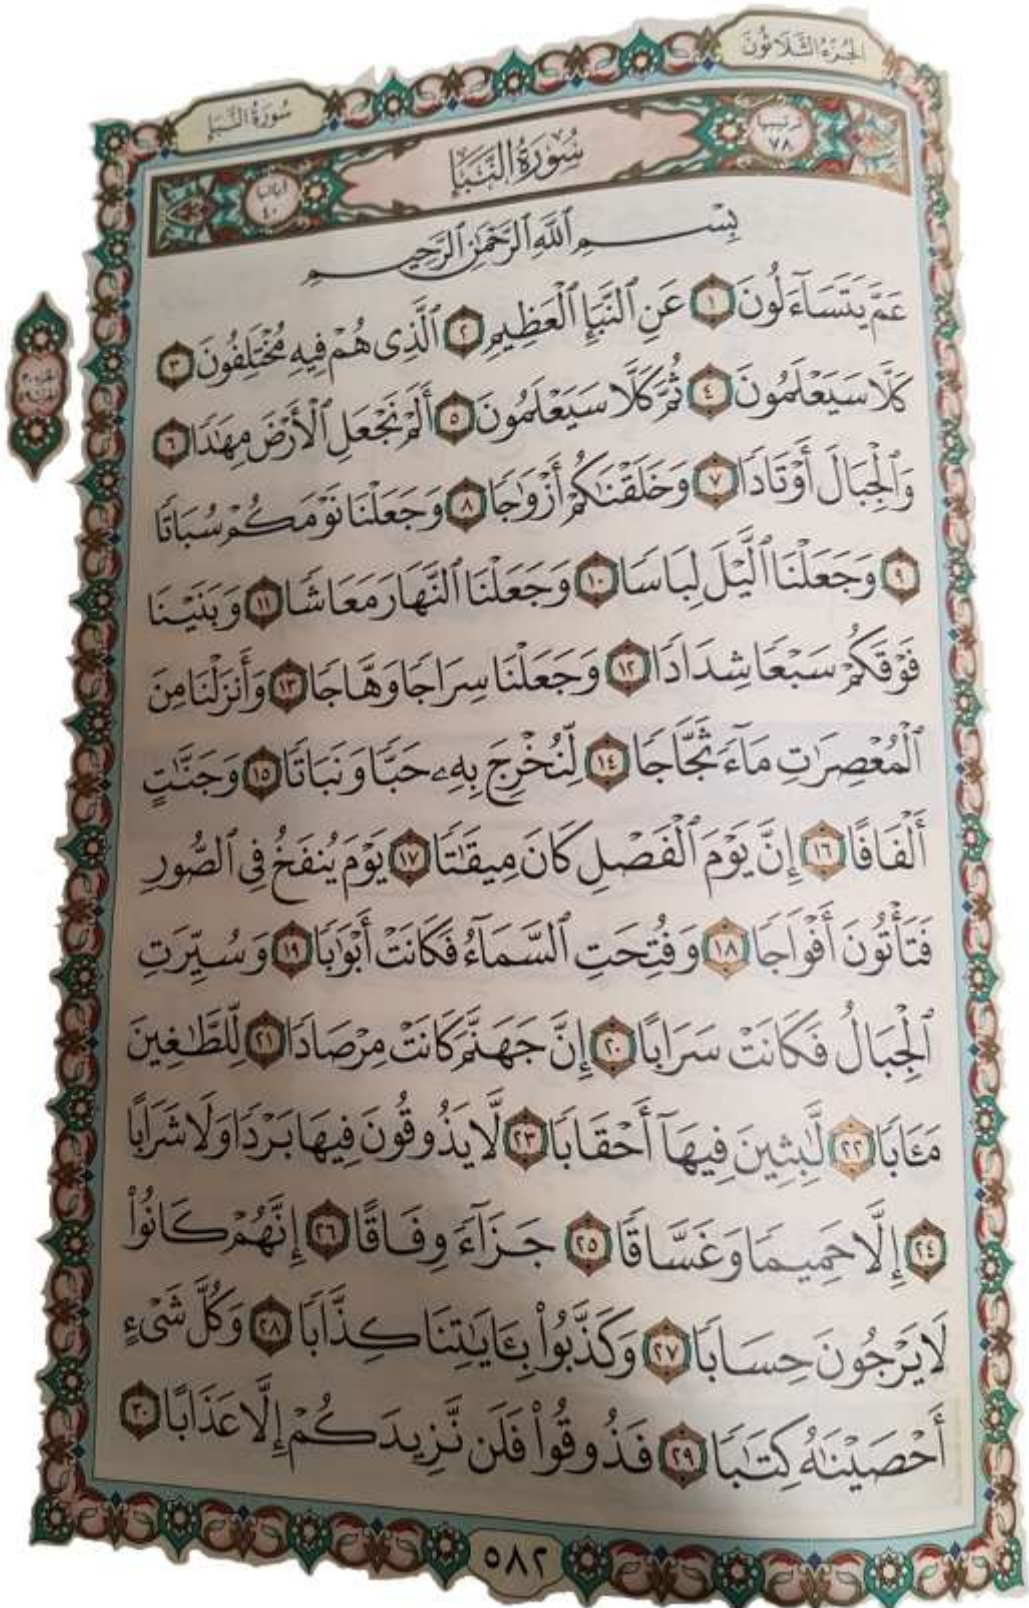 الجُزْءُ الثَّلَاثُونَ
سُورَةُ النَّبَإِ
ترتيبها ٧٨
سُورَةُ النَّبَإِ
آياتها ٤٠
بِسْمِ ٱللَّهِ ٱلرَّحْمَٰنِ ٱلرَّحِيمِ
عَمَّ يَتَسَآءَلُونَ ١ عَنِ ٱلنَّبَإِ ٱلْعَظِيمِ ٢ ٱلَّذِى هُمْ فِيهِ مُخْتَلِفُونَ ٣
كَلَّا سَيَعْلَمُونَ ٤ ثُمَّ كَلَّا سَيَعْلَمُونَ ٥ أَلَمْ نَجْعَلِ ٱلْأَرْضَ مِهَٰدًا ٦
وَٱلْجِبَالَ أَوْتَادًا ٧ وَخَلَقْنَٰكُمْ أَزْوَٰجًا ٨ وَجَعَلْنَا نَوْمَكُمْ سُبَاتًا
٩ وَجَعَلْنَا ٱلَّيْلَ لِبَاسًا ١٠ وَجَعَلْنَا ٱلنَّهَارَ مَعَاشًا ١١ وَبَنَيْنَا
فَوْقَكُمْ سَبْعًا شِدَادًا ١٢ وَجَعَلْنَا سِرَاجًا وَهَّاجًا ١٣ وَأَنزَلْنَا مِنَ
ٱلْمُعْصِرَٰتِ مَآءً ثَجَّاجًا ١٤ لِّنُخْرِجَ بِهِۦ حَبًّا وَنَبَاتًا ١٥ وَجَنَّٰتٍ
أَلْفَافًا ١٦ إِنَّ يَوْمَ ٱلْفَصْلِ كَانَ مِيقَٰتًا ١٧ يَوْمَ يُنفَخُ فِى ٱلصُّورِ
فَتَأْتُونَ أَفْوَاجًا ١٨ وَفُتِحَتِ ٱلسَّمَآءُ فَكَانَتْ أَبْوَٰبًا ١٩ وَسُيِّرَتِ
ٱلْجِبَالُ فَكَانَتْ سَرَابًا ٢٠ إِنَّ جَهَنَّمَ كَانَتْ مِرْصَادًا ٢١ لِّلطَّٰغِينَ
مَـَٔابًا ٢٢ لَّٰبِثِينَ فِيهَآ أَحْقَابًا ٢٣ لَّا يَذُوقُونَ فِيهَا بَرْدًا وَلَا شَرَابًا
٢٤ إِلَّا حَمِيمًا وَغَسَّاقًا ٢٥ جَزَآءً وِفَاقًا ٢٦ إِنَّهُمْ كَانُوا۟
لَا يَرْجُونَ حِسَابًا ٢٧ وَكَذَّبُوا۟ بِـَٔايَٰتِنَا كِذَّابًا ٢٨ وَكُلَّ شَىْءٍ
أَحْصَيْنَٰهُ كِتَٰبًا ٢٩ فَذُوقُوا۟ فَلَن نَّزِيدَكُمْ إِلَّا عَذَابًا ٣٠
٥٨٢